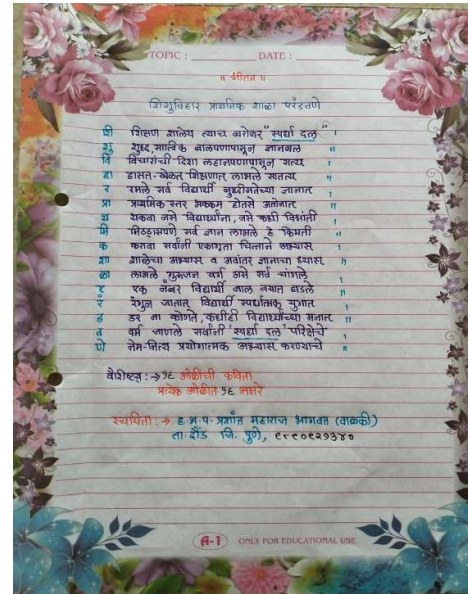 TOPIC : DATE :
॥ श्रीराम ॥
शिशुविहार प्राथमिक शाळा एरंडवणे
शि शिक्षण शालेय त्याच बरोबर "स्पर्धा दल" ।
शु शुध्द सात्विक बालपणापासून ज्ञानबल ॥
वि विचारांची दिशा लहानपणापासून सत्य ।
हा हासत-खेळत शिक्षणात लाभले सातत्य ॥
र रमले सर्व विद्यार्थी बुध्दीमतेच्या ज्ञानात ।
प्रा प्राथमिक स्तर भक्कम होतसे अतोनात ॥
थ थकवा नसे विद्यार्थ्यांना, नसे कधी विश्रांती ।
मि मिठ्ठासपणे सर्व ज्ञान लाभले हे किमती ॥
क करावा सर्वांनी एकाग्रता चित्ताने अभ्यास ।
शा शाळेचा अभ्यास व अवांतर ज्ञानाचा ध्यास ॥
ळा लाभले गुरूजन वर्ग असे सर्व चांगले ।
ए एक नंबर विद्यार्थी बाल वयात घडले ॥
रं रंगून जातात विद्यार्थी स्पर्धात्मक युगात ।
ड डर ना कोणते, कधीही विद्यार्थ्यांच्या मनात ॥
व वर्म जाणले सर्वांनी "स्पर्धा दल" परिक्षेचे ।
णे नेम-नित्य प्रयोगात्मक अभ्यास करण्याचे ॥
वैशिष्ट्य :→ १६ ओळीची कविता
प्रत्येक ओळीत १६ अक्षरे
रचयिता :→ ह.भ.प. प्रशांत महाराज भागवत (वाळकी)
ता. दौंड जि. पुणे, ९८९०८२९३४०
A-1 ONLY FOR EDUCATIONAL USE